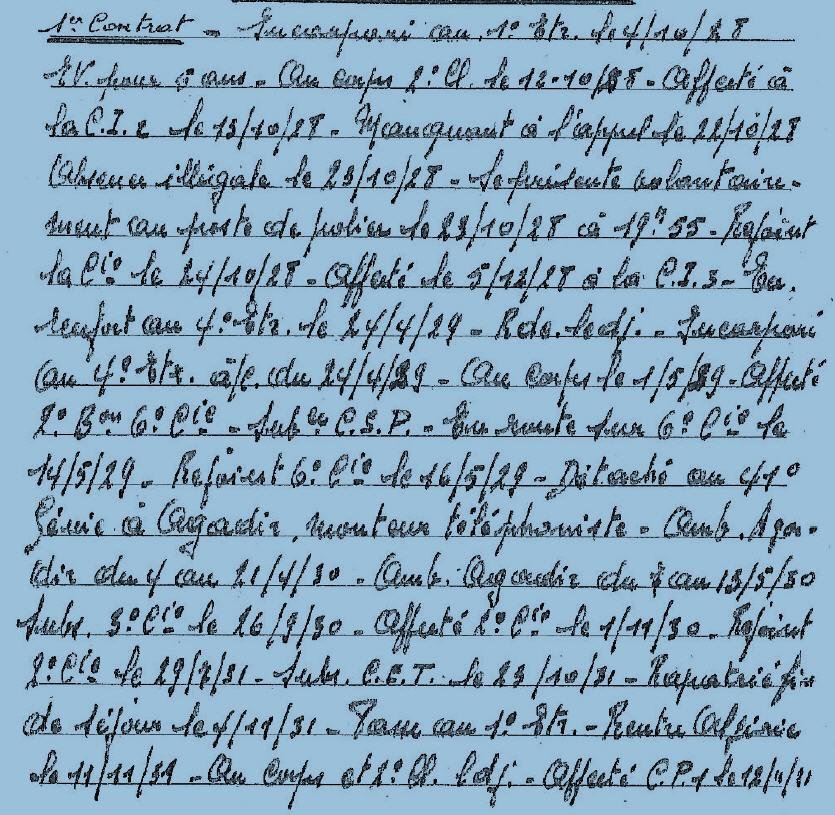 1er Contrat - Incorporé au 1° Etr. le 4/10/28
EV. pour 5 ans - Au corps 2° Cl. le 12-10/28 - Affecté à
la C.I.2 le 13/10/28 - Manquant à l'appel le 22/10/28
Absence illégale le 23/10/28 - Se présente volontaire-
ment au poste de police le 23/10/28 à 19h 55 - Rejoint
la Cie le 24/10/28 - Affecté le 5/12/28 à la C.I.3 - En
renfort au 4° Etr. le 24/4/29 - Rdc. ledj. - Incorporé
au 4° Etr. à/c. du 24/4/29 - Au corps le 1/5/29 - Affecté
2° Bon 6° Cie - Subce C.S.P. - En route sur 6° Cie le
14/5/29 - Rejoint 6° Cie le 16/5/29 - Détaché au 41°
Génie à Agadir, monteur téléphoniste - Amb. Aga-
dir du 4 au 21/4/30 - Amb. Agadir du au 13/5/30
Subs. 3° Cie le 26/9/30 - Affecté 2° Cie le 1/11/30 - Rejoint
2° Cie le 29/7/31 - Subs. C.E.T. le 23/10/31 - Rapatrié fin
de séjour le 4/11/31 - Passe au 1° Etr. - Rentre Algérie
le 11/11/31 - Au corps et 2° Cl. ledj. - Affecté C.P.1 le 12/11/31